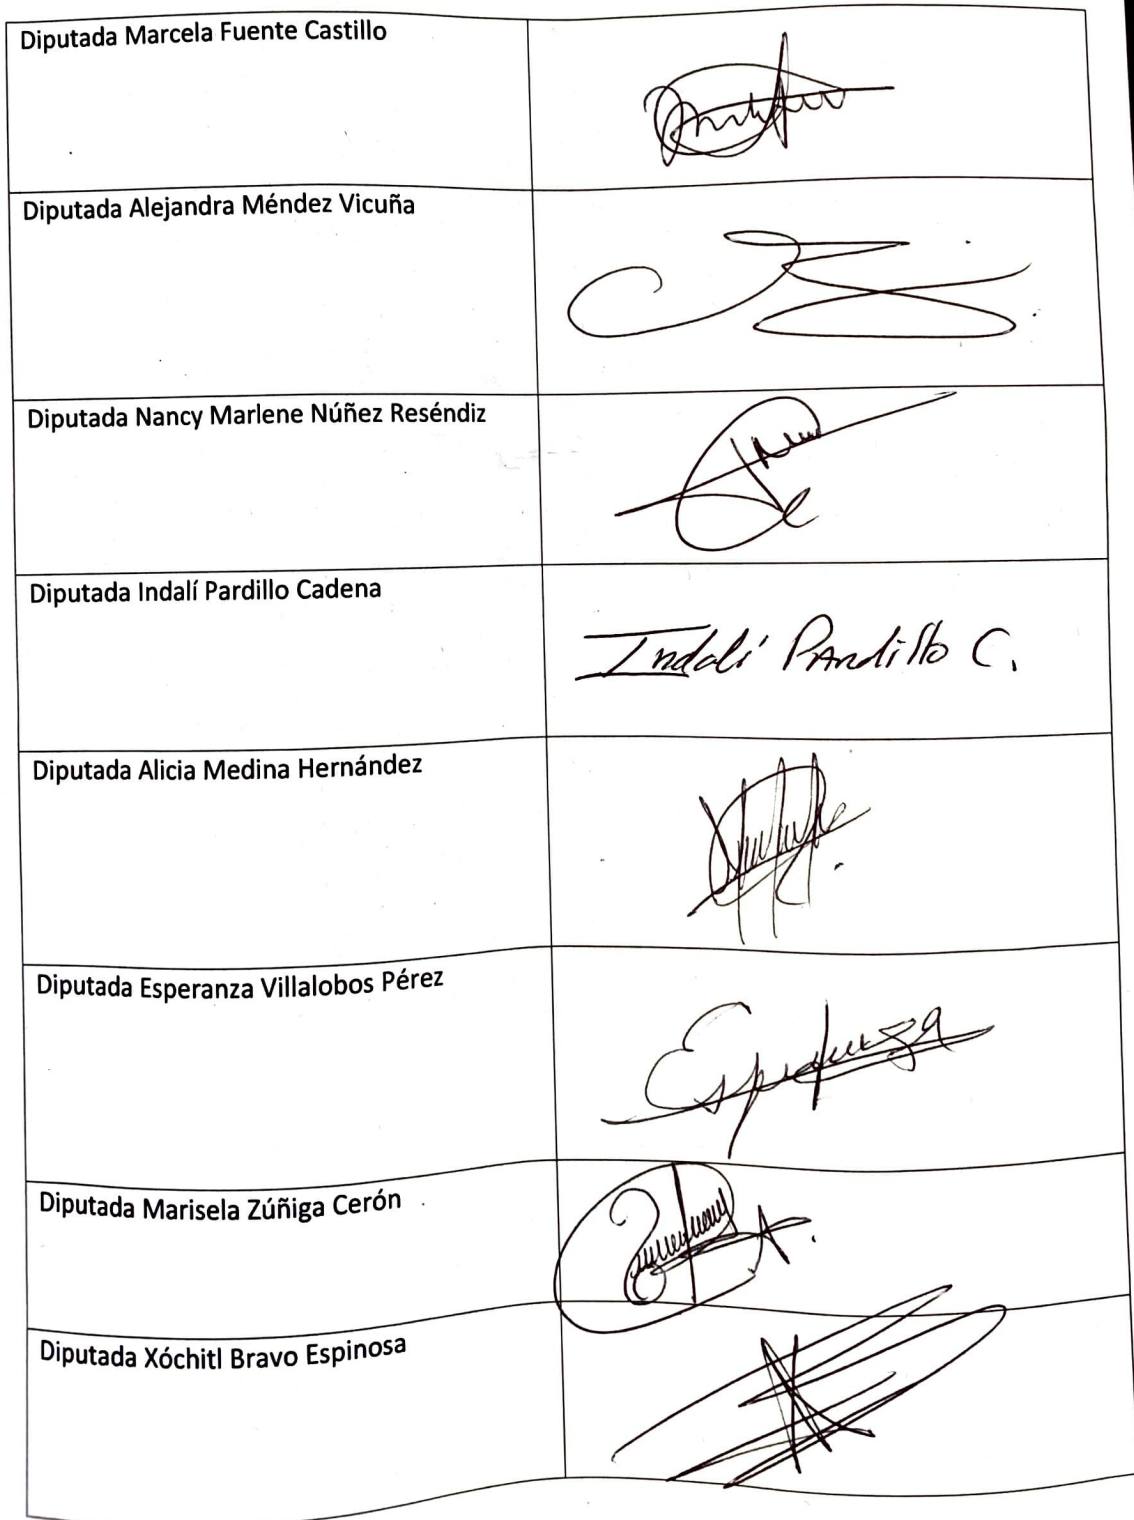 Diputada Marcela Fuente Castillo
Diputada Alejandra Méndez Vicuña
Diputada Nancy Marlene Núñez Reséndiz
Diputada Indalí Pardillo Cadena
Indalí Pardillo C.
Diputada Alicia Medina Hernández
Diputada Esperanza Villalobos Pérez
Esperanza
Diputada Marisela Zúñiga Cerón
Diputada Xóchitl Bravo Espinosa